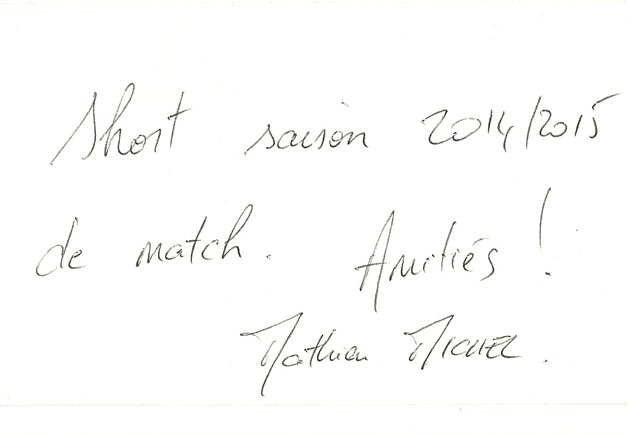 Short saison 2014/2015
de match. Amitiés !
Mathieu MICHEL.